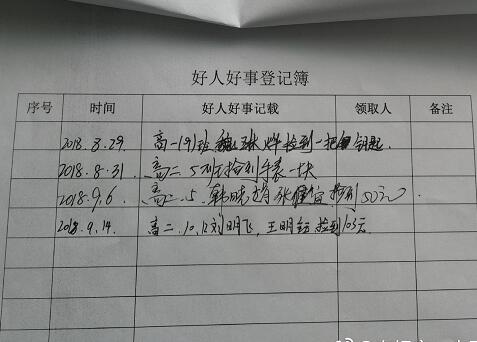 好人好事登记簿
序号 时间 好人好事记载 领取人 备注
2018.8.29 高一(9)班 魏 烨捡到一把钥匙
2018.8.31 高二 5班捡到手表一块
2018.9.6 高二.5. 韩晓 张 捡到50元
2018.9.14. 高二.10.12刘明飞,王明 捡到103元.